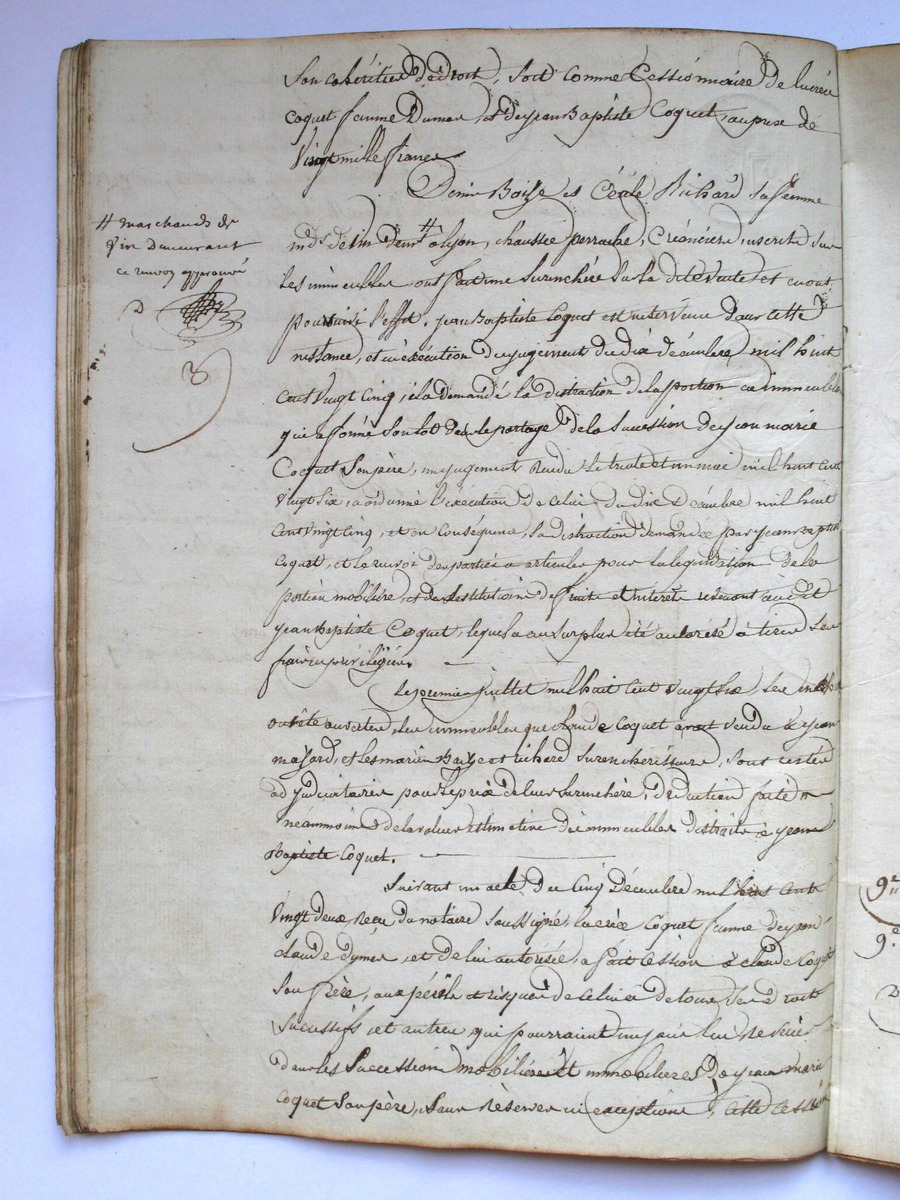 Son cohéritier de droit, soit comme Cessionnaire de lucrèce
Coquet femme Dumas, et de jean Baptiste Coquet, au prix de
Vingt mille francs
Denis Boisse et Cécile Richard sa femme
# marchands de
vin demeurant
ce renvoy approuvé
mds de vin # à lyon, chaussée perrache, Créanciers inscrits sur
les immeubles ont fait une Surenchère sur la dite vente et en ont
poursuivi l'effet. jean Baptiste Coquet est intervenu dans cette
instance, et en exécution du jugement du dix décembre mil huit
cent vingt cinq, il a demandé la distraction de la portion en immeubles
qui a formé son lot dans le partage de la Succession de jean marie
Coquet Son père, un jugement Rendu le trente et un mai mil huit cent
vingt six, a ordonné l'exécution de celui du dix décembre mil huit
cent vingt cinq, et en Conséquence la distraction demandée par jean Baptiste
Coquet, et le renvoi des parties à articuler pour la liquidation de la
portion mobilière, et des restitutions de fruits et intérêts revenant au dit
jean Baptiste Coquet, lequel a au surplus été autorisé à tirer ses
frais en privilégiés.
Le premier juillet mil huit cent vingt six, les enchères
ont été ouvertes, les immeubles que Claude Coquet avait vendu à jean
et les mariés Boisse et Richard Surenchérisseurs, sont restés
adjudicataires pour le prix de leur Surenchère, déduction faite
néanmoins de la valeur estimative des immeubles distraits à jean
Baptiste Coquet.
Suivant un acte du Cinq Décembre mil huit cent
vingt deux, reçu du notaire soussigné, lucrèce Coquet femme de jean
claude Dumas, et de lui autorisée, a fait Cession à claude Coquet
Son frère, aux périls et risques de celui ci de tous ses droits
Successifs et autres qui pourraient un jour lui revenir
dans les Successions mobilières et immobilières de jean marie
Coquet Son père, sans réserve ni exceptions, cette cession
9e
9e